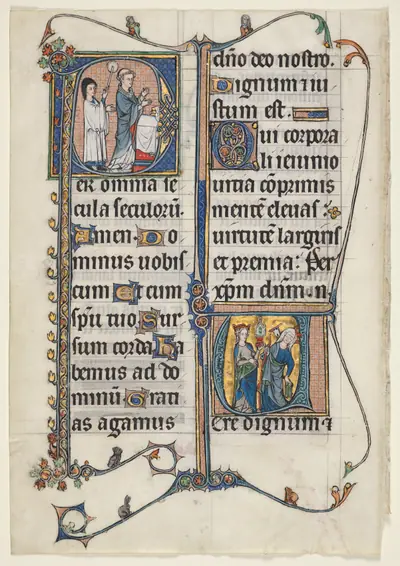 er omnia se
cula seculoꝝ.
Amen. Do
minus uobis
cum Et cum
sp̄u tuo Sur
sum corda Ha
bemus ad do
minū Grati
as agamus
dn̄o deo nostro.
Dignum ⁊ iu
stum est.
Qui corpora
li ieiunio
uitia cōprimis
mentē eleuas:
uirtutē largiris
et premia: Per
xp̄m dn̄m
Uere dignum ⁊